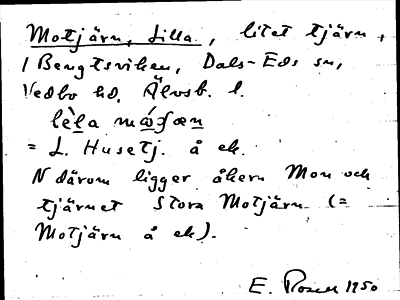 Motjärn, Lilla, litet tjärn,
i Bengtsviken, Dals-Eds sn,
Vedbo hd, Älvsb. l.
= L. Husetj. å ek.
N därom ligger åkern Mon och
tjärnet Stora Motjärn (=
Motjärn å ek).
E. Rosell 1950